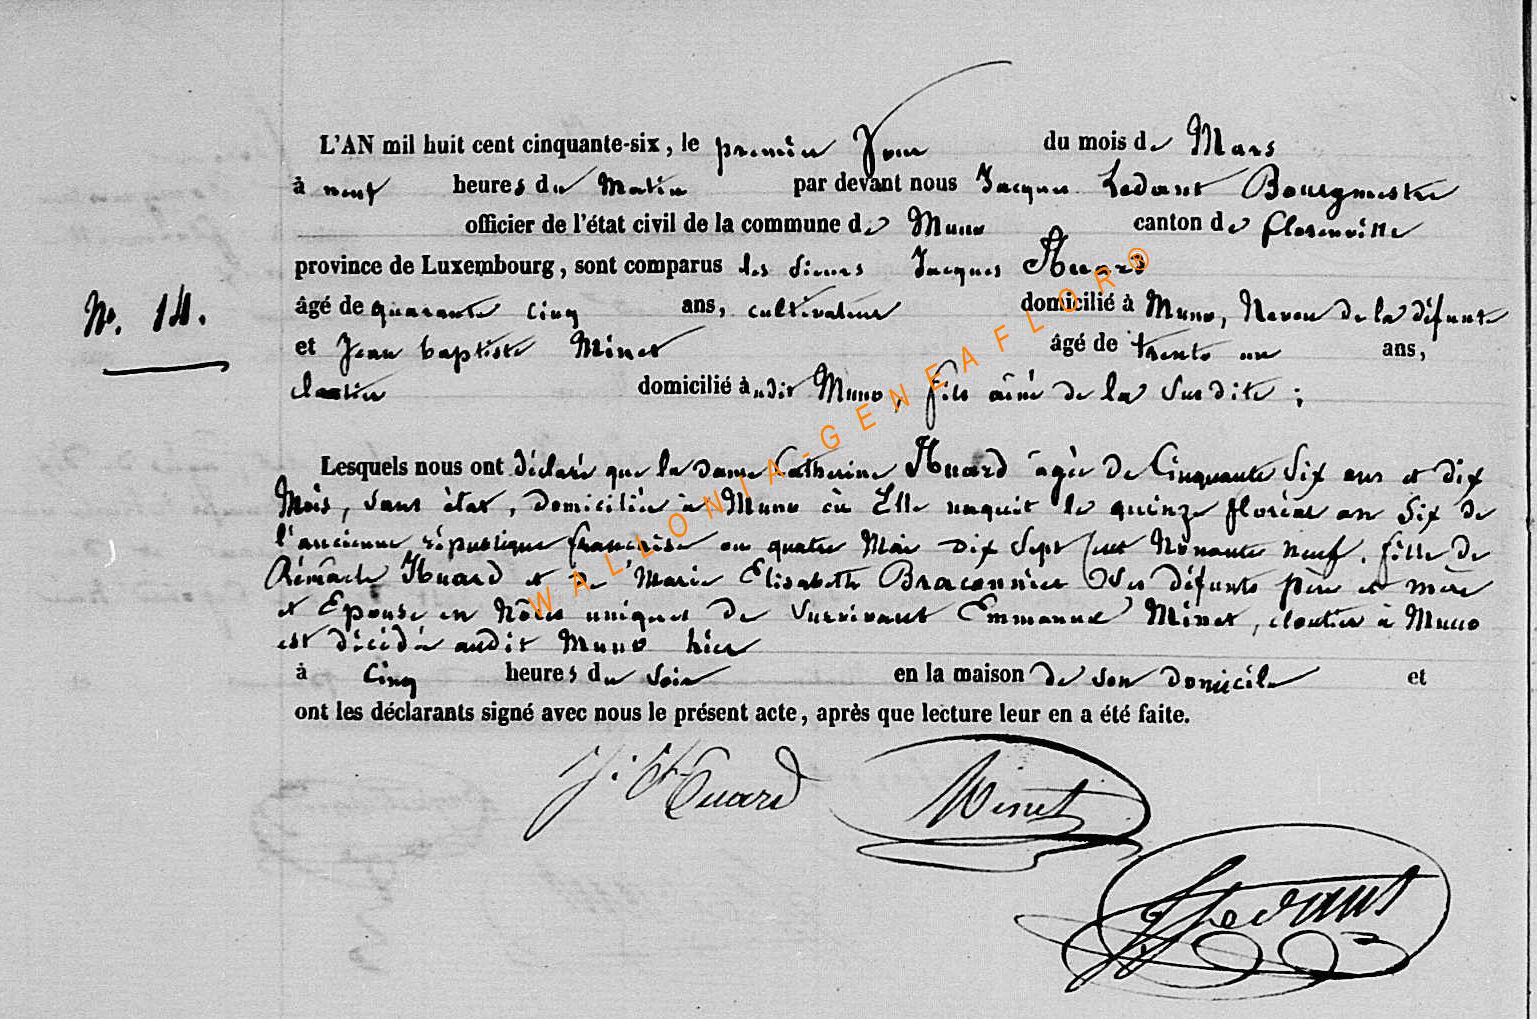 L'AN mil huit cent cinquante-six, le premier Jour du mois de Mars
à neuf heures du Matin par devant nous Jacques Ledant Bourgmestre
officier de l'état civil de la commune de Muno canton de florenville
province de Luxembourg, sont comparus les Sieurs Jacques Huard
âgé de quarante cinq ans, cultivateur domicilié à Muno, Neveu de la défunte
N°. 14.
et Jean baptiste Minet âgé de trente un ans,
cloutier domicilié audit Muno, fils aîné de la Susdite ;
Lesquels nous ont déclaré que la dame Catherine Huard âgée de Cinquante Six ans et dix
Mois, Sans état, domiciliée à Muno où Elle naquit le quinze floréal an Six de
l'ancienne république française ou quatre Mai dix Sept Cent Nonante neuf. fille de
Rémacle Huard et de Marie Elisabeth Braconnier Ses défunts père et mère
et Epouse en Nôces uniques de Survivant Emmanuel Minet, cloutier à Muno
est décédée audit Muno hier
à Cinq heures du Soir en la maison de Son domicile et
ont les déclarants signé avec nous le présent acte, après que lecture leur en a été faite.
J. H Huard Minet
J Ledant
WALLONIA-GENEAFLOR®